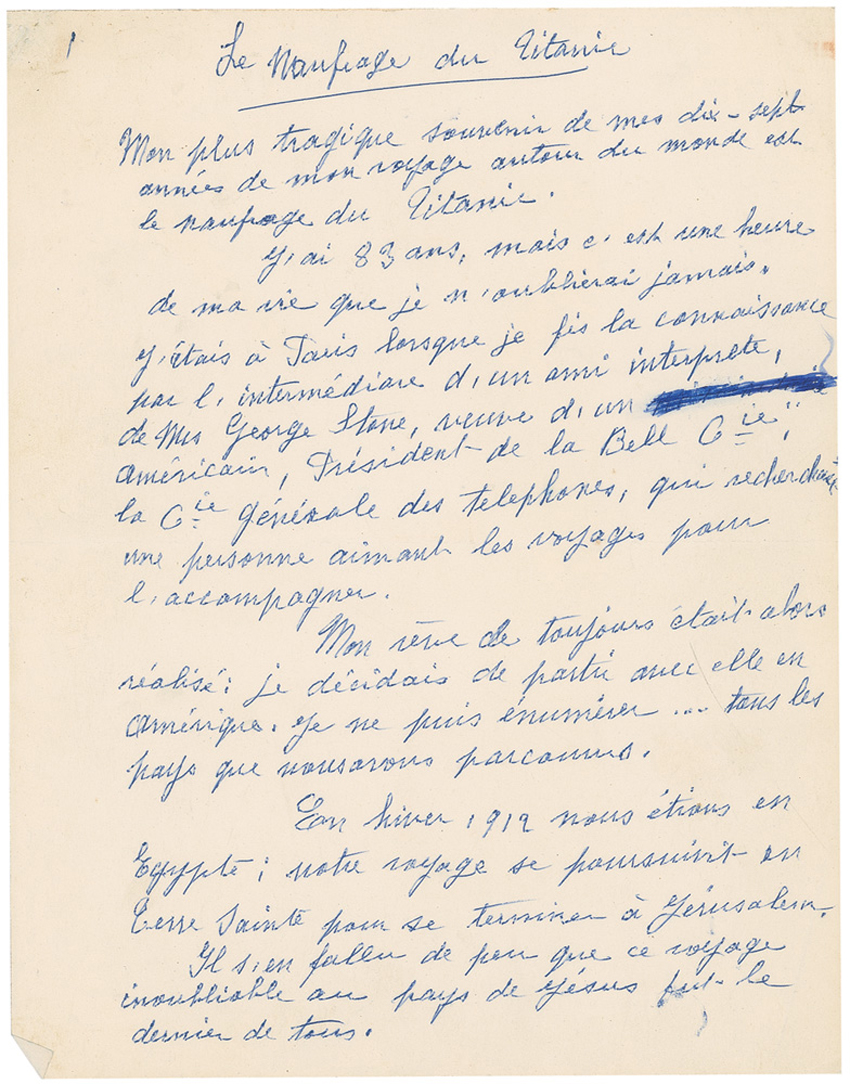 1
Le Naufrage du Titanic
Mon plus tragique souvenir de mes dix-sept
années de mon voyage autour du monde est
le naufrage du Titanic.
J'ai 83 ans, mais c'est une heure
de ma vie que je n'oublierai jamais.
J'étais à Paris lorsque je fis la connaissance
par l'intermédiaire d'un ami interprete,
de Mrs George Stone, veuve d'un
américain, Président de la Bell Cie",
la Cie générale des telephones, qui recherchait
une personne aimant les voyages pour
l'accompagner.
Mon rêve de toujours était alors
réalisé: je décidais de partir avec elle en
Amérique. Je ne puis énumérer ... tous les
pays que nous avons parcourus.
En hiver 1912 nous étions en
Egypte; notre voyage se poursuivit en
Terre Sainte pour se terminer à Jérusalem.
Il s'en fallu de peu que ce voyage
inoubliable au pays de Jésus fut le
dernier de tous.